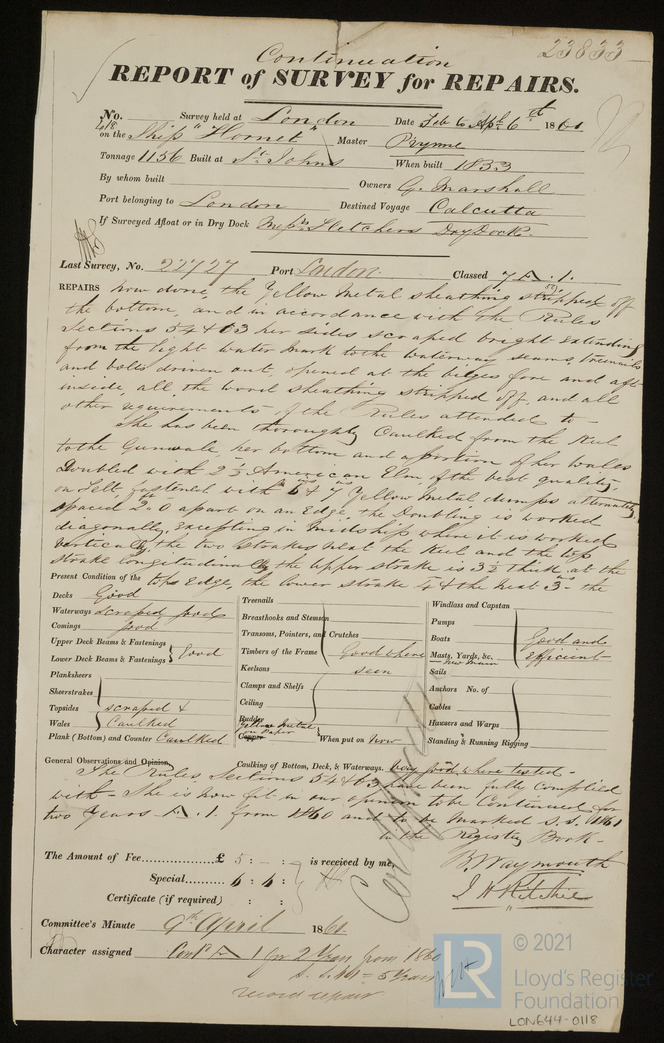 Continuation 23833
REPORT of SURVEY for REPAIRS.
No. 418 Survey held at London Date Feb to Apl 6th 1861
on the Ship "Hornet" Master Prynne
Tonnage 1156 Built at St Johns When built 1853
By whom built Owners G. Marshall
Port belonging to London Destined Voyage Calcutta
If Surveyed Afloat or in Dry Dock Messrs Fletchers Dry Dock.
Last Survey, No. 22727 Port London Classed 7 A. 1.
REPAIRS now done, the Yellow Metal sheathing stripped off
the bottom, and in accordance with the Rules
Sections 54 & 63 her sides scraped bright extending
from the light water mark to the waterway seams, treenails
and bolts driven out, opened at the bilges fore and aft
inside, all the wood sheathing stripped off, and all
other requirements of the Rules attended to –
She has been thoroughly Caulked from the Keel
to the Gunwale, her bottom and a portion of her Wales
Doubled with 2½ American Elm of the best quality
on Felt, fastened with 6 & 7 Yellow Metal dumps alternately
spaced 2.0 apart on an Edge, the Doubling is worked
diagonally, excepting in Midship where it is worked
vertically, the two Strakes next the Keel and the top
strake longitudinally the upper strake is 3½ thick at the
Present Condition of the tops Edge, the lower strake 4 & the next 3 – the
Decks Good
Waterways scraped good
Comings good
Upper Deck Beams & Fastenings
Lower Deck Beams & Fastenings } Good
Planksheers
Sheerstrakes
Topsides
Wales } scraped & Caulked
Plank (Bottom) and Counter Caulked
Treenails
Breasthooks and Stemson
Transoms, Pointers, and Crutches
Timbers of the Frame
Keelsons Good where seen
Clamps and Shelfs
Ceiling
Rudder
Yellow Metal on Paper
Copper When put on Now
Windlass and Capstan
Pumps
Boats
Masts, Yards, &c. New Main
Sails
Good and efficient
Anchors No. of
Cables
Hawsers and Warps
Standing & Running Rigging
General Observations and Opinion, Caulking of Bottom, Deck, & Waterways. Very good, where tested –
The Rules Sections 54 & 63 have been fully complied
with – She is now fit in our opinion to be Continued for
two Years A. 1. from 1860 and to be marked S.S. 1861
in the Register Book –
The Amount of Fee £ 5 : – : is received by me,
Special 6 : 6 :
Certificate (if required) : :
B. Waymouth
J H Ritchie
Committee's Minute 9th April 1861
Character assigned Contd A 1 for 2 Years from 1860
record repair
© 2021
LR
Lloyd's Register
Foundation
LON644-0118